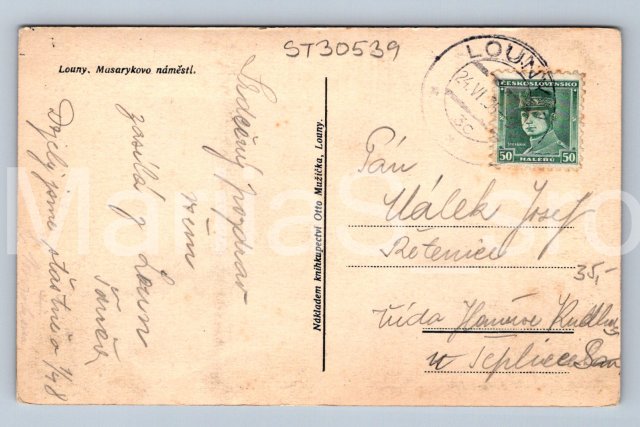 ST30539
Louny. Masarykovo náměstí.
Srdečný pozdrav
všem
zasílá z Loun
Dojeli jsme šťastně o 1/48
Nákladem knihkupectví Otto Mužička, Louny.
LOUNY
24.VI.
3c
ČESKOSLOVENSKO
50 HALÉŘŮ 50
Pán
Válek Josef
Řetenice
35,-
třída
u Teplic